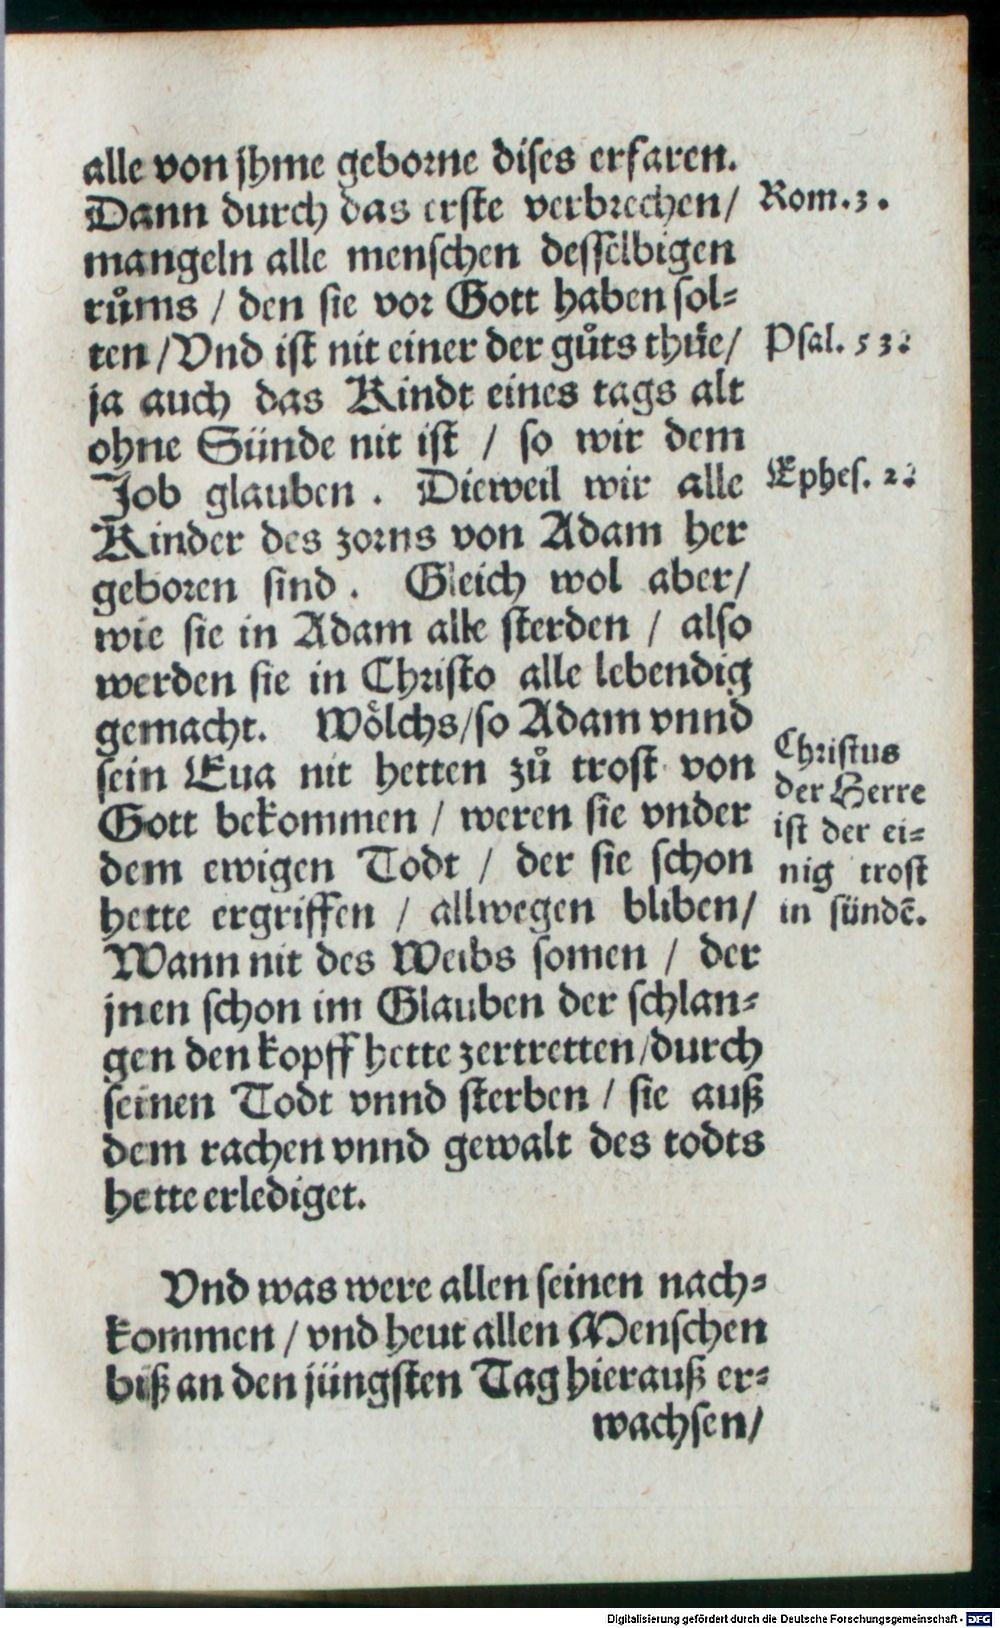 alle von jhme geborne dises erfaren.
Dann durch das erste verbrechen/
mangeln alle menschen desselbigen
růms / den sie vor Gott haben sol=
ten / Vnd ist nit einer der gůts thüe/
ja auch das Kindt eines tags alt
ohne Sünde nit ist / so wir dem
Job glauben . Dieweil wir alle
Kinder des zorns von Adam her
geboren sind . Gleich wol aber/
wie sie in Adam alle sterden / also
werden sie in Christo alle lebendig
gemacht. Wölchs/so Adam vnnd
sein Eua nit hetten zů trost von
Gott bekommen / weren sie vnder
dem ewigen Todt / der sie schon
hette ergriffen / allwegen bliben/
Wann nit des Weibs somen / der
jnen schon im Glauben der schlan=
gen den kopff hette zertretten/durch
seinen Todt vnnd sterben / sie auß
dem rachen vnnd gewalt des todts
hette erlediget.
Vnd was were allen seinen nach=
kommen / vnd heut allen Menschen
biß an den jüngsten Tag hierauß er=
wachsen/
Rom.3.
Psal. 53.
Ephes. 2.
Christus
der Herre
ist der ei=
nig trost
in sündẽ.
Digitalisierung gefördert durch die Deutsche Forschungsgemeinschaft - DFG